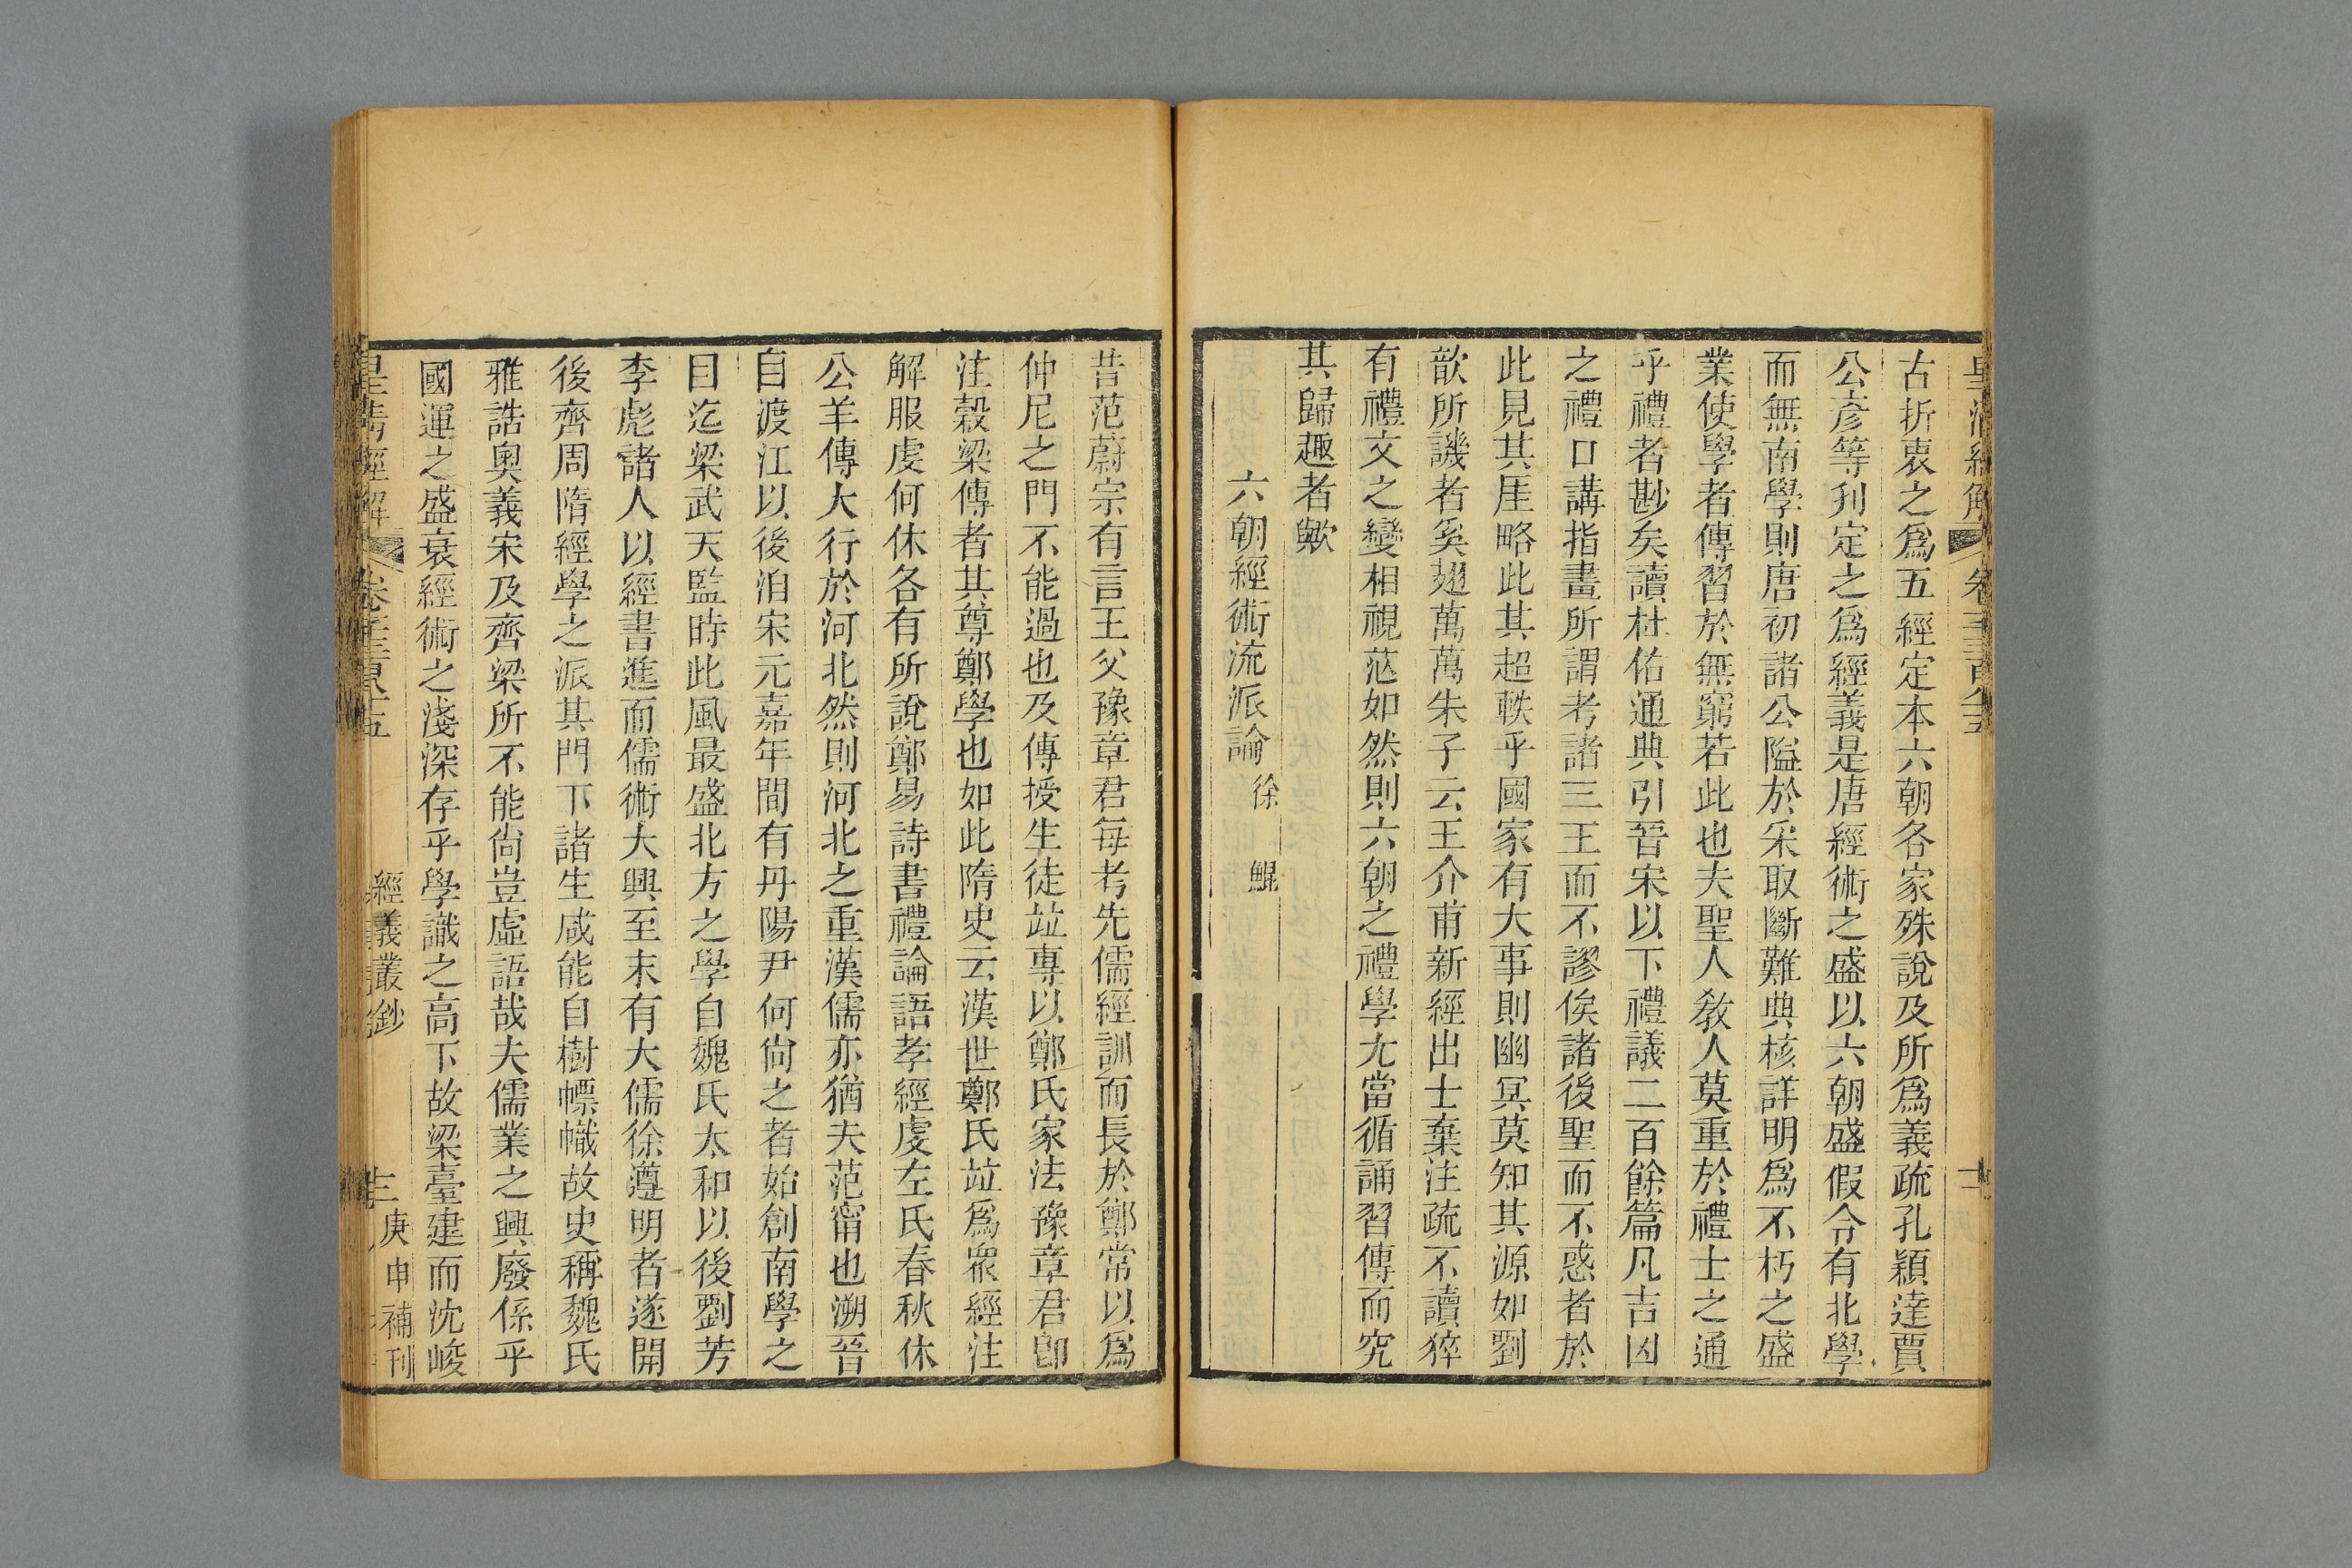 古折衷之爲五經定本六朝各家殊說及所爲義疏孔穎達賈
公彥等刋定之爲經義是唐經術之盛以六朝盛假令有北學
而無南學則唐初諸公隘於采取斷難典核詳明爲不朽之盛
業使學者傳習於無窮若此也夫聖人敎人莫重於禮士之通
乎禮者尠矣讀杜佑通典引晉宋以下禮議二百餘篇凡吉凶
之禮口講指畫所謂考諸三王而不謬俟諸後聖而不惑者於
此見其厓略此其超軼乎國家有大事則幽冥莫知其源如劉
歆所譏者奚翅萬萬朱子云王介甫新經出士棄注疏不讀猝
有禮文之變相視茫如然則六朝之禮學尤當循誦習傳而究
其歸趣者歟
六朝經術流派論 徐 鯤
昔范蔚宗有言王父豫章君每考先儒經訓而長於鄭常以爲
仲尼之門不能過也及傳授生徒竝專以鄭氏家法豫章君卽
注穀梁傳者其尊鄭學也如此隋史云漢世鄭氏竝爲衆經注
解服虔何休各有所說鄭易詩書禮論語孝經虔左氏春秋休
公羊傳大行於河北然則河北之重漢儒亦猶夫范甯也溯晉
自渡江以後洎宋元嘉年間有丹陽尹何尙之者始創南學之
目迄梁武天監時此風最盛北方之學自魏氏太和以後劉芳
李彪諸人以經書進而儒術大興至末有大儒徐遵明者遂開
後齊周隋經學之派其門下諸生咸能自樹幖幟故史稱魏氏
雅誥奧義宋及齊梁所不能尙豈虛語哉夫儒業之興廢係乎
國運之盛衰經術之淺深存乎學識之高下故梁臺建而沈峻
皇清經解 經義叢鈔 庚申補刊